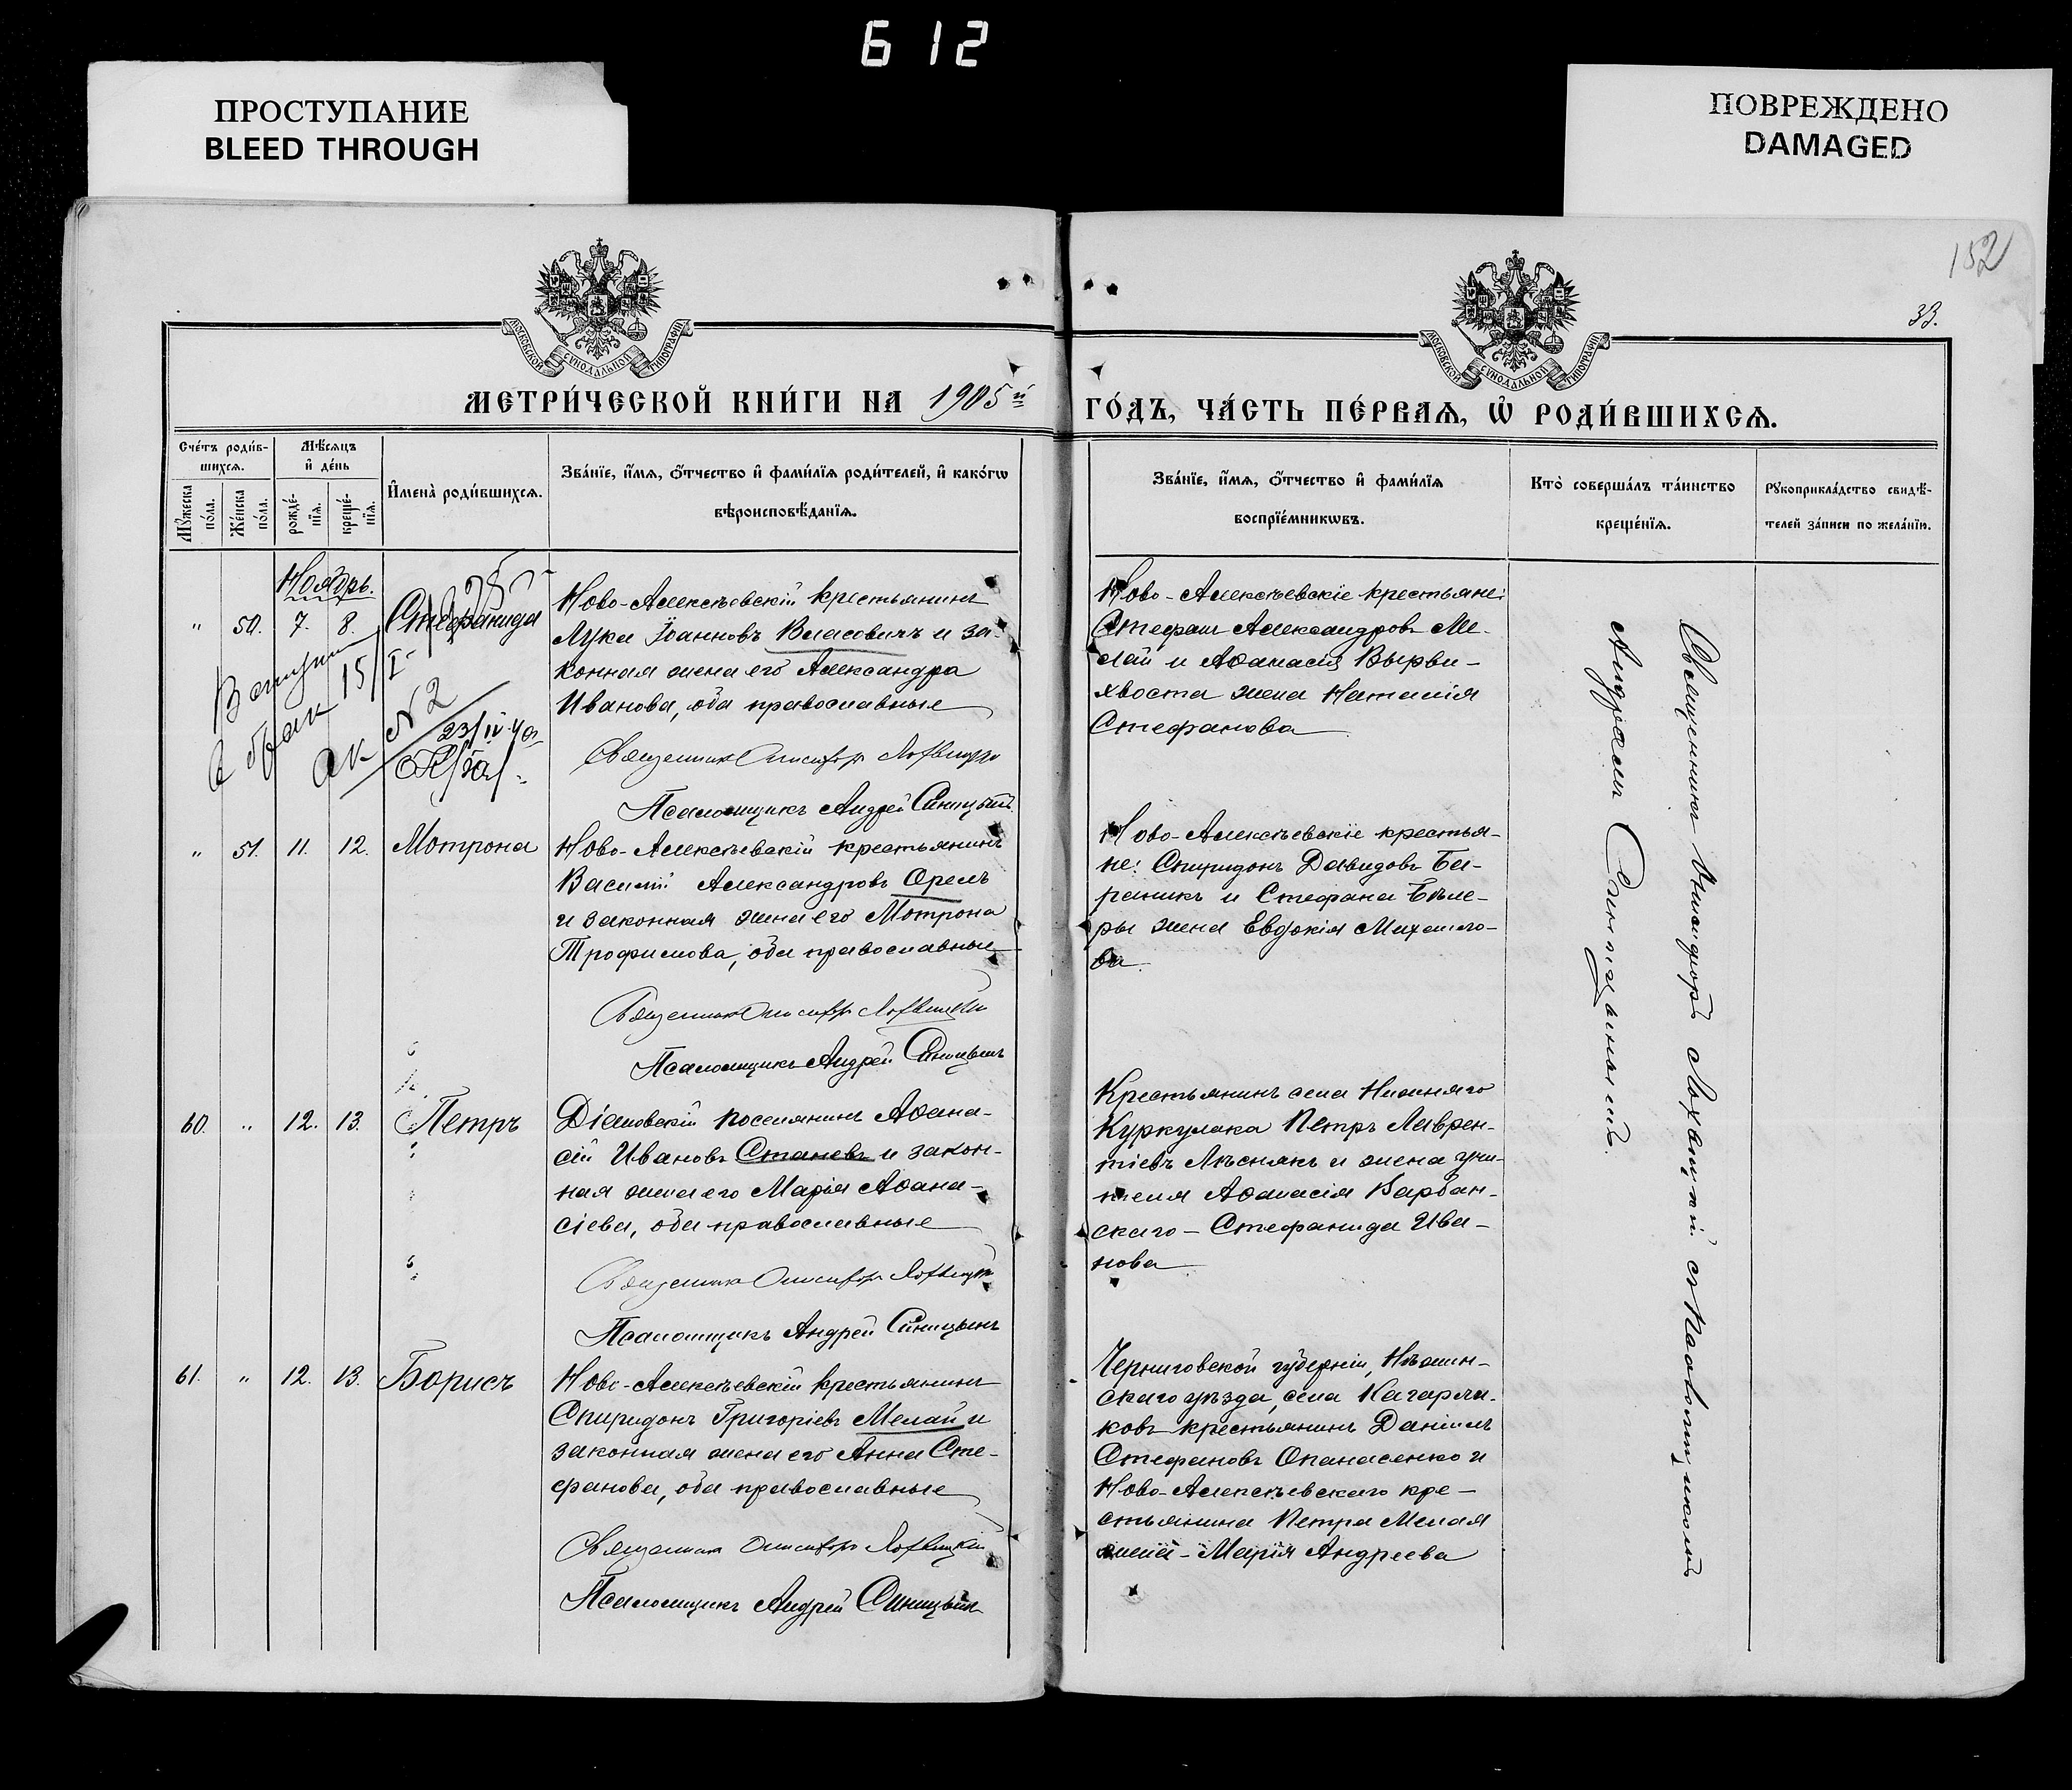 612
ПРОСТУПАНИЕ
BLEED THROUGH
ПОВРЕЖДЕНО
DAMAGED
152
33.
МОСКОВСКОЙ СѴНОДАЛЬНОЙ ТИПОГРАФІИ
МОСКОВСКОЙ СѴНОДАЛЬНОЙ ТИПОГРАФІИ
МЕТРИ́ЧЕСКОЙ КНИ́ГИ НА 1905й
ГО́ДЪ, ЧА́СТЬ ПЕ́РВАѦ, Ѡ҆ РОДИ́ВШИХСѦ.
Сче́тъ роди́в-
шихсѧ.
Мѣ́сѧцъ
и҆ де́нь
Мꙋ́жеска по́ла.
Же́нска по́ла.
рожде́-
нїѧ.
креще́-
нїѧ.
И҆мена̀ роди́вшихсѧ.
Зва́нїе, и҆́мѧ, ѻ҆́тчество и҆ фами́лїѧ роди́телей, и҆ како́гѡ
вѣроисповѣ́данїѧ.
Зва́нїе, и҆́мѧ, ѻ҆́тчество и҆ фами́лїѧ
воспрїе́мникѡвъ.
Кто̀ соверша́лъ та́инство
креще́нїѧ.
Рꙋкоприкла́дство свидѣ́-
телей за́писи по жела́нїю.
Ноябрь.
" 50. 7. 8. Стефанида
Ново-Алексѣевскій крестьянинъ
Лука Іоанновъ Власовичъ и за-
конная жена его Александра
Иванова, оба православные
Священникъ Онисифоръ Лохвицкій
Псаломщикъ Андрей Синицынъ
Вступила
в брак 15/I-
ак N 2
23/IV
Ново-Алексѣевскіе крестьяне:
Стефанъ Александровъ Ме-
лай и Аѳанасія Вырви-
хвоста жена Наталія
Стефанова
" 51. 11. 12. Мотрона
Ново-Алексѣевскій крестьянинъ
Василій Александровъ Орелъ
и законная жена его Мотрона
Трофимова, оба православные
Священникъ Онисифоръ Лохвицкій
Псаломщикъ Андрей Синицынъ
Ново-Алексѣевскіе крестья-
не: Спиридонъ Давидовъ Ба-
раникъ и Стефана Бѣле-
ры жена Евдокія Михайло-
ва.
60. " 12. 13. Петръ
Діановскій поселянинъ Аѳана-
сій Ивановъ Станевъ и закон-
ная жена его Марія Аѳана-
сіева, оба православные
Священникъ Онисифоръ Лохвицкій
Псаломщикъ Андрей Синицынъ
Крестьянинъ села Нижняго
Куркулака Петръ Лаврен-
тіевъ Лѣснякъ и жена учи-
теля Аѳанасія Варбан-
скаго - Стефанида Ива-
нова
61. " 12. 13. Борисъ
Ново-Алексѣевскій крестьянинъ
Спиридонъ Григоріевъ Мелай и
законная жена его Анна Сте-
фанова, оба православные
Священникъ Онисифоръ Лохвицкій
Псаломщикъ Андрей Синицынъ
Черниговской губерніи, Нѣжин-
скаго уѣзда, села Кагарлы-
ковъ крестьянинъ Даніилъ
Стефановъ Опанасенко и
Ново-Алексѣевскаго кре-
стьянина Петра Мелая
жена - Марія Андреева
Священникъ Онисифоръ Лохвицкій съ псаломщикомъ
Андреемъ Синицынымъ.